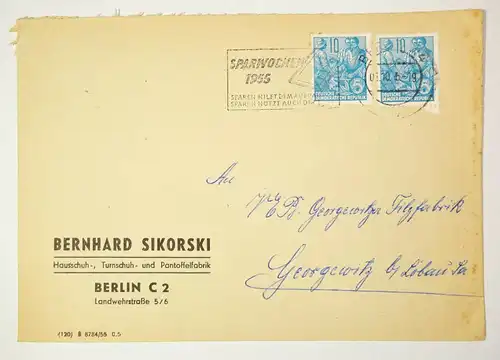 SPARWOCHEN
1955
SPAREN HILFT DEM AUFBAU
SPAREN NÜTZT AUCH DIR
10
DEUTSCHE
DEMOKRATISCHE REPUBLIK
10
DEUTSCHE
DEMOKRATISCHE REPUBLIK
An
VEB. Georgewitzer Filzfabrik
Georgewitz b/ Löbau Sa
BERNHARD SIKORSKI
Hausschuh-, Turnschuh- und Pantoffelfabrik
BERLIN C 2
Landwehrstraße 5/6